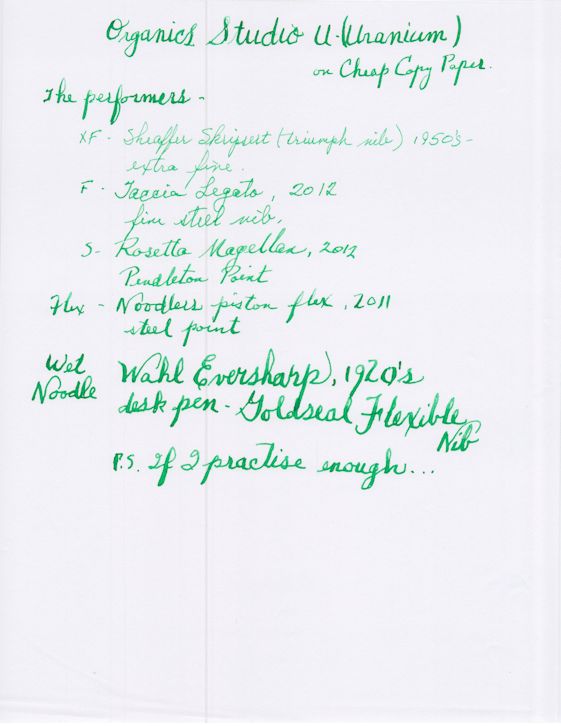 Organics Studio U-(Uranium)
on Cheap Copy Paper.
The performers -
XF - Sheaffer Skripsert (triumph nib) 1950's -
extra fine.
F - Taccia Legato, 2012
fine steel nib.
S- Rosetta Magellan, 2012
Pendleton Point
Flex - Noodlers piston flex, 2011
steel point
Wet Noodle Wahl Eversharp, 1920's
desk pen - Goldseal Flexible
Nib
P.S. If I practise enough...